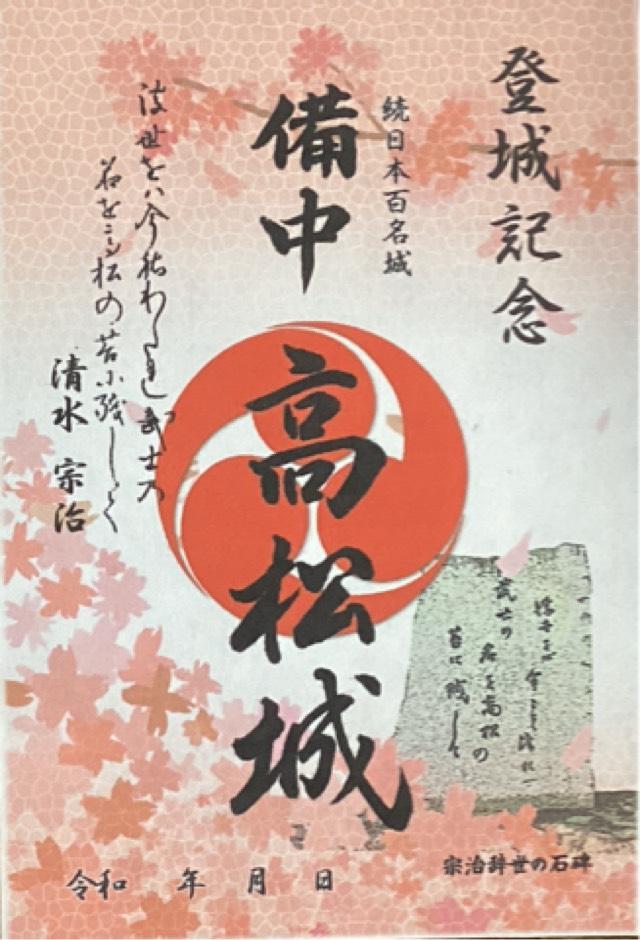 登城記念
続日本百名城
備中
高松城
浮世をハ今社わたれ武士乃
名を高松の苔小残して
清水 宗治
浮世をば
今こそ渡れ
武士の
名を高松の
苔に残して
宗治辞世の石碑
令和 年 月 日